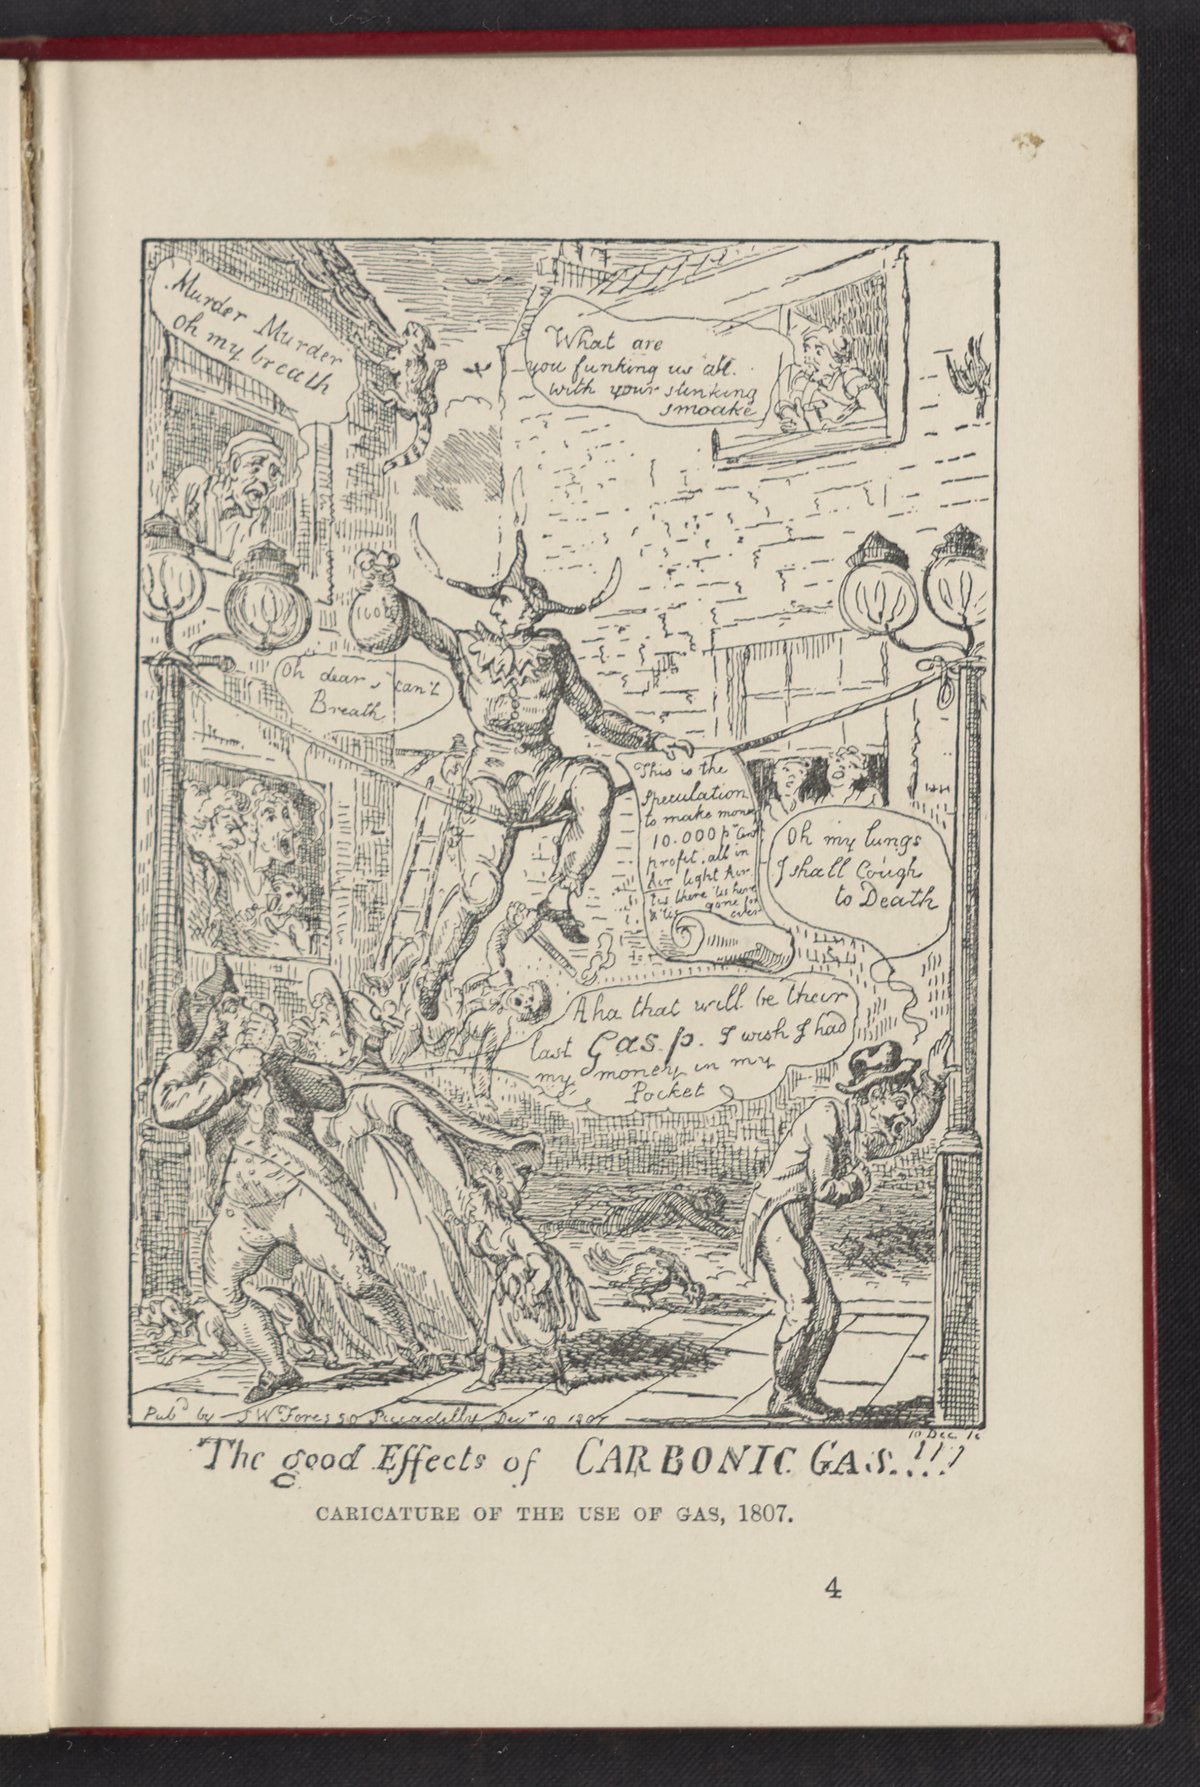 Murder Murder
oh my breath
What are
you funking us all.
with your stinking
smoake
160
Oh dear, can't
Breath
This is the
Speculation
to make money
10.000 pr Cent
profit, all in
Air light Air
Tis there 'tis here
& 'tis gone for
ever
Oh my lungs
I shall Cough
to Death
Aha that will be their
last Gas-p. I wish I had
my money in my
Pocket
Pubd by S W Fores 50 Piccadilly Decr 10 1807
10 Dec
The good Effects of CARBONIC GAS.!!!
CARICATURE OF THE USE OF GAS, 1807.
4